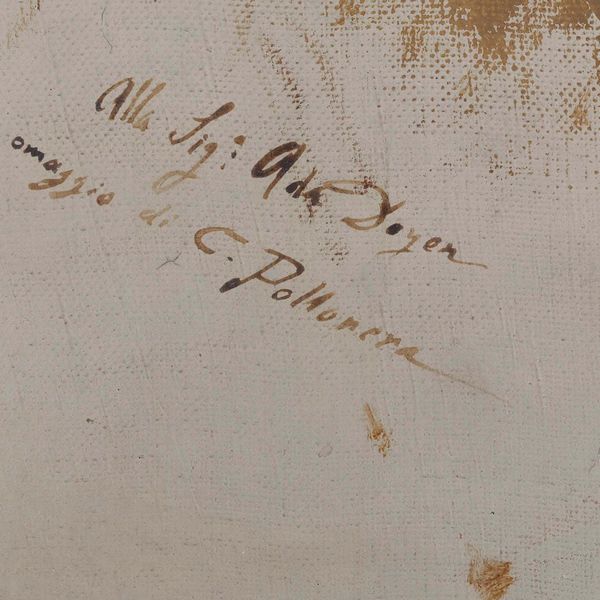 Alla Sig.ª Ada Doyen
omaggio di C. Pollonera